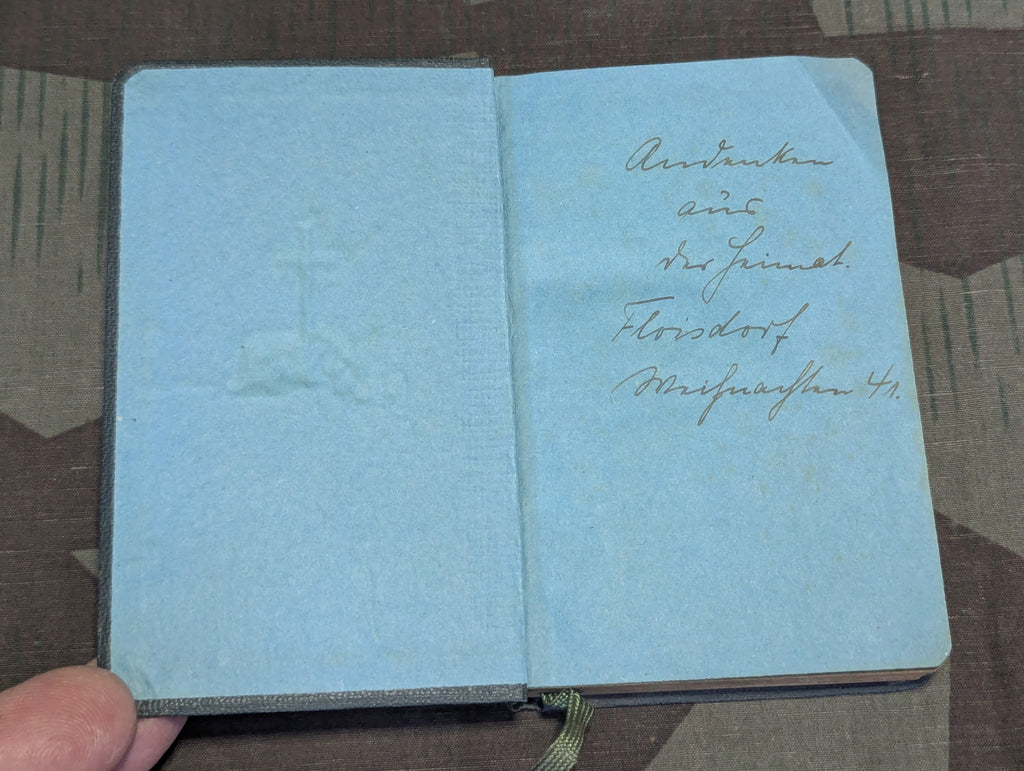 Andenken
aus
der Heimat.
Floisdorf
Weihnachten 41.